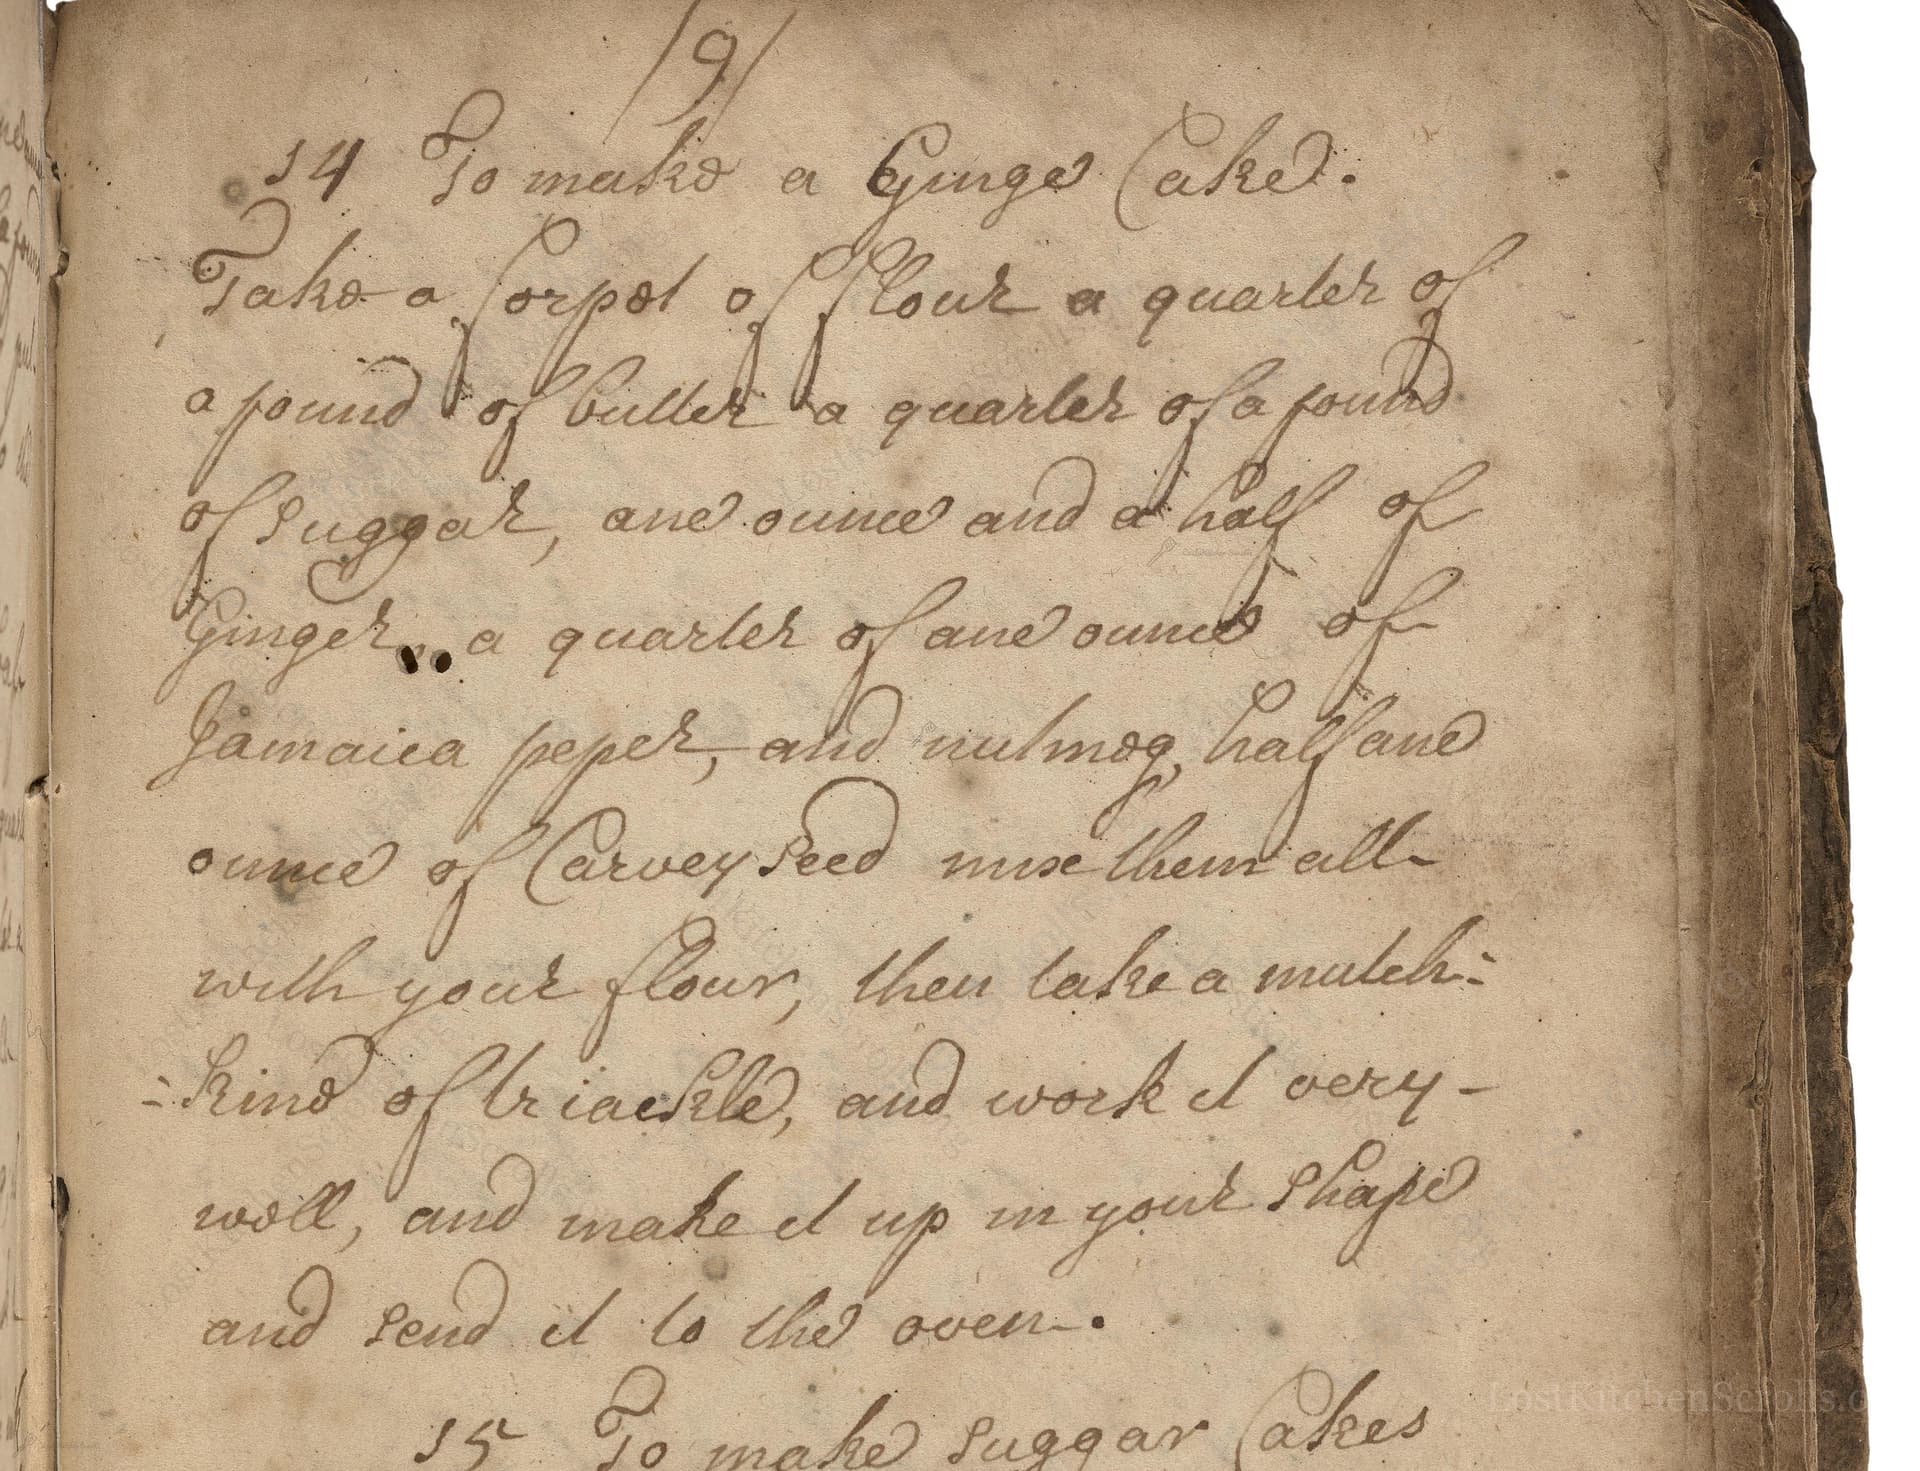 /9/
14 To make a Ginge Cake.
Take a forpet of flour a quarter of
a pound of butter a quarter of a pound
of suggar, ane ounce and a half of
Ginger, a quarter of ane ounce of
Jamaica peper, and nutmeg, half ane
ounce of Carvey seed mix them all
with your flour, then take a mutch=
=kind of triackle, and work it very
well, and make it up in your shape
and send it to the oven.
15 To make suggar Cakes
LostKitchenScrolls.o